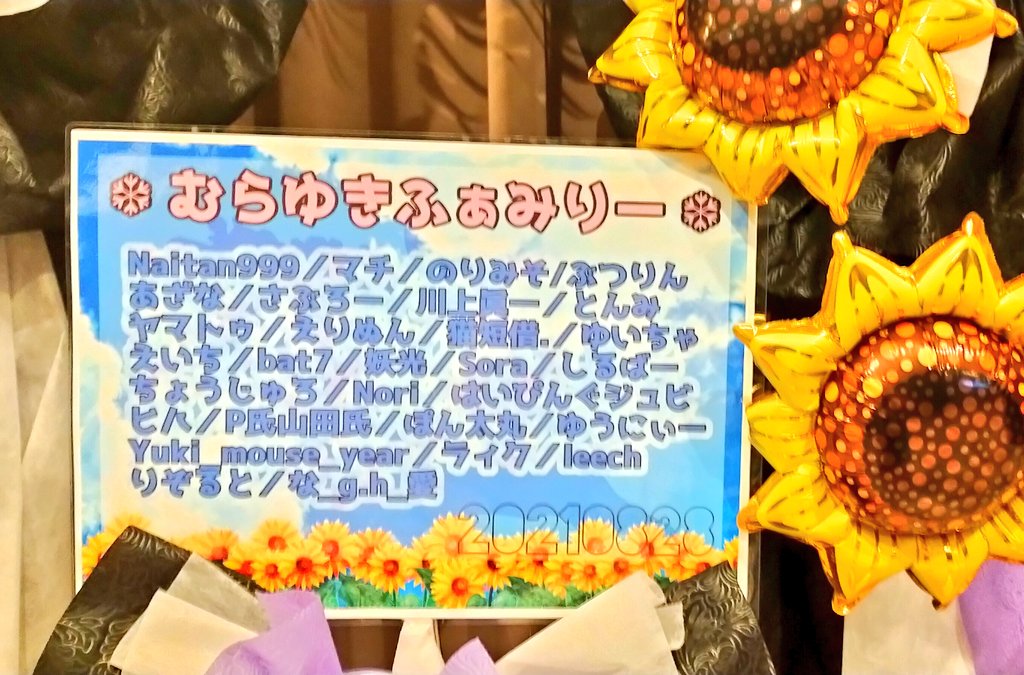 むらゆきふぁみりー
Naitan999/マチ/のりみそ/ぶつりん
あざな/さぶろー/川上眞一/とんみ
ヤマトゥ/えりぬん/猫短借./ゆいちゃ
えいち/bat7/妖光/Sora/しるばー
ちょうじゅろ/Nori/はいぴんぐジュピ
ヒ八/P氏山田氏/ぽん太丸/ゆうにぃー
Yuki_mouse_year/ライク/leech
りぞると/な_g.h_愛
20210828